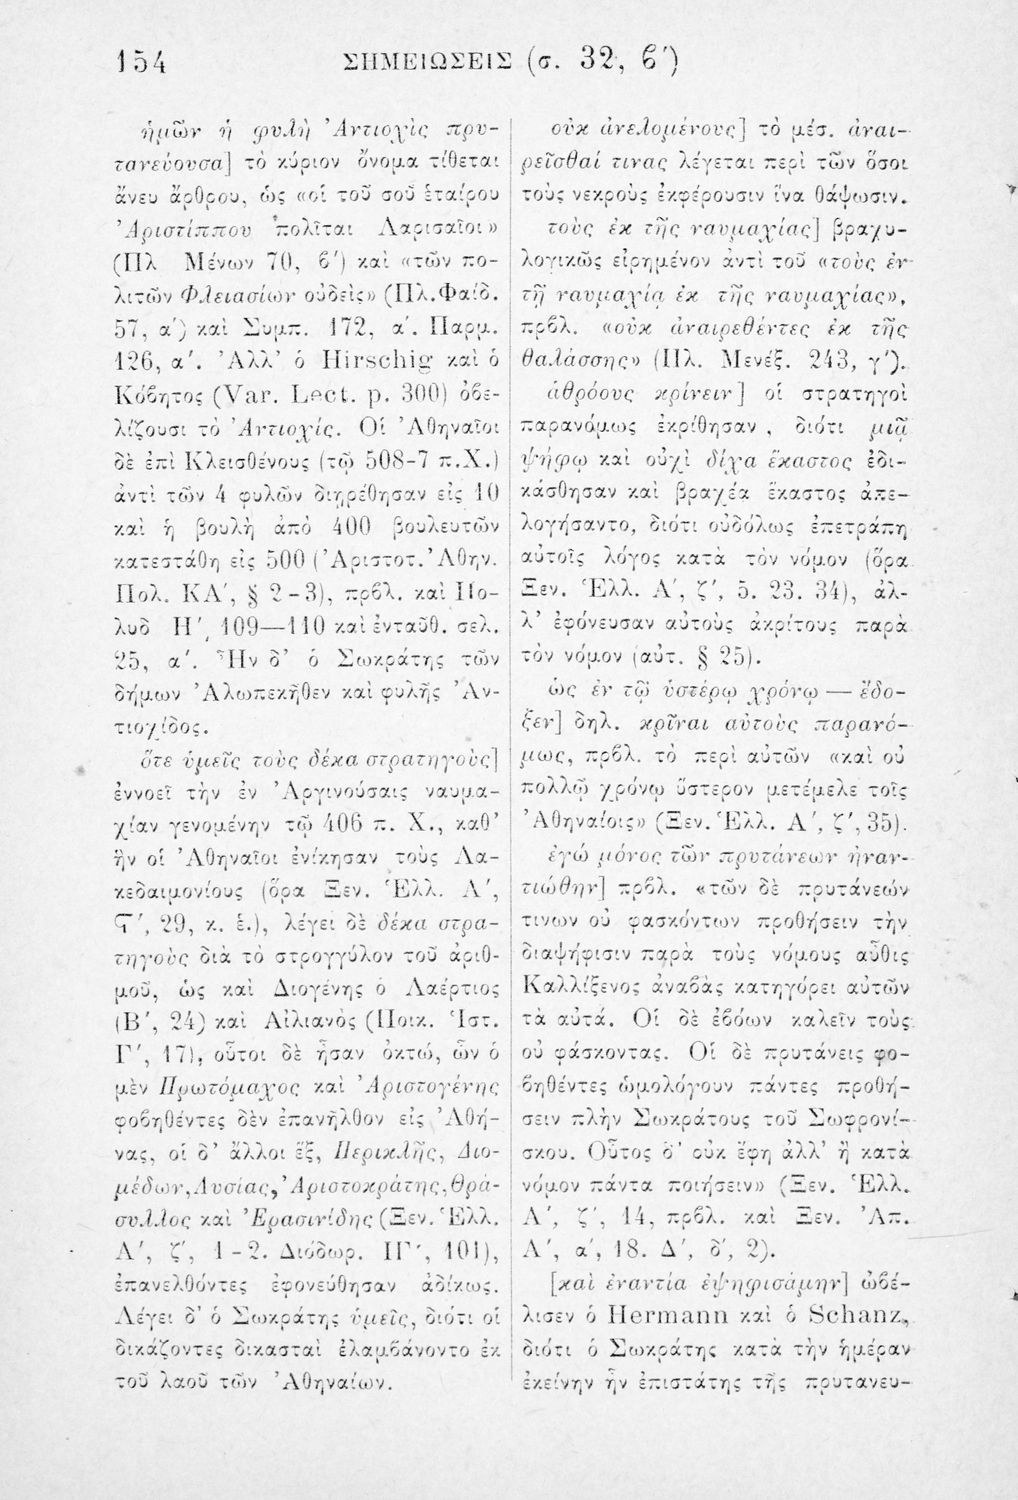 154 ΣΗΜΕΙΩΣΕΙΣ (σ. 32, β΄)
ἡμῶν ἡ φυλὴ Ἀντιοχὶς πρυ-
τανεύουσα] τὸ κύριον ὄνομα τίθεται
ἄνευ ἄρθρου, ὡς «οἱ τοῦ σοῦ ἑταίρου
Ἀριστίππου πολῖται Λαρισαῖοι»
(Πλ Μένων 70, β΄) καὶ «τῶν πο-
λιτῶν Φλειασίων οὐδεὶς» (Πλ.Φαίδ.
57, α΄) καὶ Συμπ. 172, α΄. Παρμ.
126, α΄. Ἀλλ’ ὁ Hirschig καὶ ὁ
Κόβητος (Var. Lect. p. 300) ὀβε-
λίζουσι τὸ Ἀντιοχίς. Οἱ Ἀθηναῖοι
δὲ ἐπὶ Κλεισθένους (τῷ 508-7 π.Χ.)
ἀντὶ τῶν 4 φυλῶν διῃρέθησαν εἰς 10
καὶ ἡ βουλὴ ἀπὸ 400 βουλευτῶν
κατεστάθη εἰς 500 (Ἀριστοτ. Ἀθην.
Πολ. ΚΑ΄, § 2-3), πρβλ. καὶ Πο-
λυδ Η΄, 109—110 καὶ ἐνταῦθ. σελ.
25, α΄. Ἦν δ’ ὁ Σωκράτης τῶν
δήμων Ἀλωπεκῆθεν καὶ φυλῆς Ἀν-
τιοχίδος.
ὅτε ὑμεῖς τοὺς δέκα στρατηγοὺς]
ἐννοεῖ τὴν ἐν Ἀργινούσαις ναυμα-
χίαν γενομένην τῷ 406 π. Χ., καθ’
ἣν οἱ Ἀθηναῖοι ἐνίκησαν τοὺς Λα-
κεδαιμονίους (ὅρα Ξεν. Ἑλλ. Α΄,
Ϛ΄, 29, κ. ἑ.), λέγει δὲ δέκα στρα-
τηγοὺς διὰ τὸ στρογγύλον τοῦ ἀριθ-
μοῦ, ὡς καὶ Διογένης ὁ Λαέρτιος
(Β΄, 24) καὶ Αἰλιανὸς (Ποικ. Ἱστ.
Γ΄, 17), οὗτοι δὲ ἦσαν ὀκτώ, ὧν ὁ
μὲν Πρωτόμαχος καὶ Ἀριστογένης
φοβηθέντες δὲν ἐπανῆλθον εἰς Ἀθή-
νας, οἱ δ’ ἄλλοι ἕξ, Περικλῆς, Διο-
μέδων, Λυσίας, Ἀριστοκράτης, Θρά-
συλλος καὶ Ἐρασινίδης (Ξεν. Ἑλλ.
Α΄, ζ΄, 1-2. Διόδωρ. ΙΓ΄, 101),
ἐπανελθόντες ἐφονεύθησαν ἀδίκως.
Λέγει δ’ ὁ Σωκράτης ὑμεῖς, διότι οἱ
δικάζοντες δικασταὶ ἐλαμβάνοντο ἐκ
τοῦ λαοῦ τῶν Ἀθηναίων.
οὐκ ἀνελομένους] τὸ μέσ. ἀναι-
ρεῖσθαί τινας λέγεται περὶ τῶν ὅσοι
τοὺς νεκροὺς ἐκφέρουσιν ἵνα θάψωσιν.
τοὺς ἐκ τῆς ναυμαχίας] βραχυ-
λογικῶς εἰρημένον ἀντὶ τοῦ «τοὺς ἐν
τῇ ναυμαχίᾳ ἐκ τῆς ναυμαχίας»,
πρβλ. «οὐκ ἀναιρεθέντες ἐκ τῆς
θαλάσσης» (Πλ. Μενέξ. 243, γ΄).
ἁθρόους κρίνειν] οἱ στρατηγοὶ
παρανόμως ἐκρίθησαν, διότι μιᾷ
ψήφῳ καὶ οὐχὶ δίχα ἕκαστος ἐδι-
κάσθησαν καὶ βραχέα ἕκαστος ἀπε-
λογήσαντο, διότι οὐδόλως ἐπετράπη
αὐτοῖς λόγος κατὰ τὸν νόμον (ὅρα
Ξεν. Ἑλλ. Α΄, ζ΄, 5. 23. 34), ἀλ-
λ’ ἐφόνευσαν αὐτοὺς ἀκρίτους παρὰ
τὸν νόμον (αὐτ. § 25).
ὡς ἐν τῷ ὑστέρῳ χρόνῳ — ἔδο-
ξεν] δηλ. κρῖναι αὐτοὺς παρανό-
μως, πρβλ. τὸ περὶ αὐτῶν «καὶ οὐ
πολλῷ χρόνῳ ὕστερον μετέμελε τοῖς
Ἀθηναίοις» (Ξεν. Ἑλλ. Α΄, ζ΄, 35).
ἐγώ μόνος τῶν πρυτάνεων ἠναν-
τιώθην] πρβλ. «τῶν δὲ πρυτάνεών
τινων οὐ φασκόντων προθήσειν τὴν
διαψήφισιν παρὰ τοὺς νόμους αὖθις
Καλλίξενος ἀναβὰς κατηγόρει αὐτῶν
τὰ αὐτά. Οἱ δὲ ἐβόων καλεῖν τοὺς
οὐ φάσκοντας. Οἱ δὲ πρυτάνεις φο-
βηθέντες ὡμολόγουν πάντες προθή-
σειν πλὴν Σωκράτους τοῦ Σωφρονί-
σκου. Οὗτος δ’ οὐκ ἔφη ἀλλ’ ἢ κατὰ
νόμον πάντα ποιήσειν» (Ξεν. Ἑλλ.
Α΄, ζ΄, 14, πρβλ. καὶ Ξεν. Ἀπ.
Α΄, α΄, 18. Δ΄, δ΄, 2).
[καὶ ἐναντία ἐψηφισάμην] ὠβέ-
λισεν ὁ Hermann καὶ ὁ Schanz,
διότι ὁ Σωκράτης κατὰ τὴν ἡμέραν
ἐκείνην ἦν ἐπιστάτης τῆς πρυτανευ-